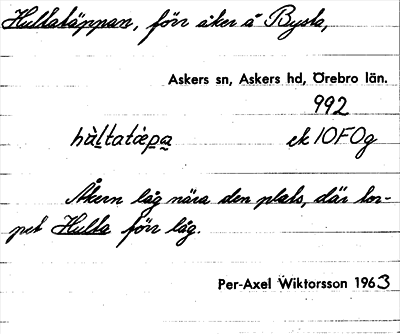 Hultatäppan, förr åker å Bysta,
Askers sn, Askers hd, Örebro län.
992
hùltatæpa ek 10F0g
Åkern låg nära den plats, där tor-
pet Hulta förr låg.
Per-Axel Wiktorsson 1963